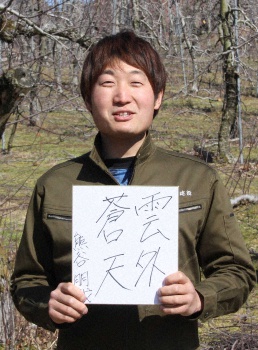 雲外
蒼天
熊谷 明